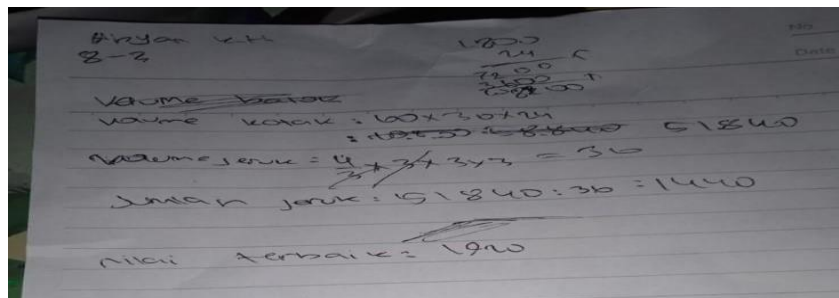 8-2
1.800
24 x
7200
3600 +
No
Date
Volume kotak
Volume kotak = 60 x 30 x 24
= 51840
Volume jeruk = 4/3 x 3 x 3 x 3 = 36
Jumlah jeruk = 51840 : 36 = 1440
Nilai terbaik = 1920